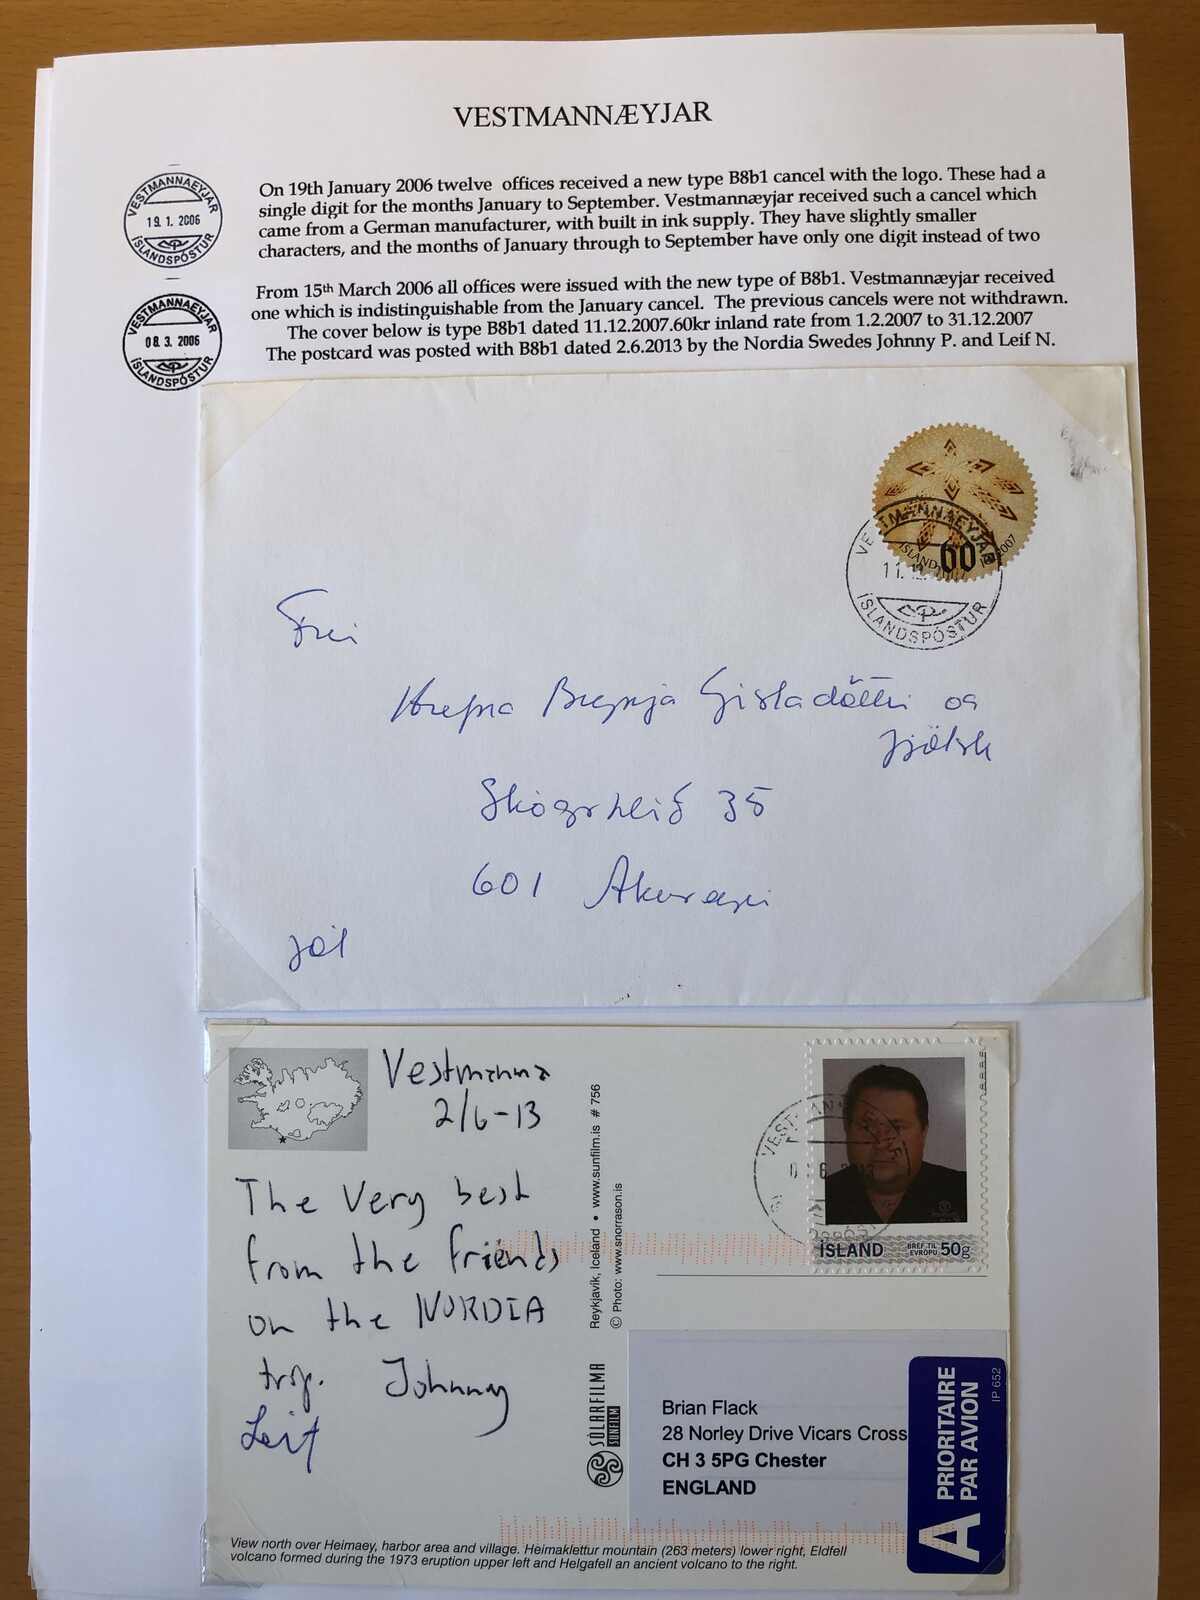 VESTMANNÆYJAR
VESTMANNAEYJAR
19.1. 2006
ÍSLANDSPÓSTUR
On 19th January 2006 twelve offices received a new type B8b1 cancel with the logo. These had a
single digit for the months January to September. Vestmannæyjar received such a cancel which
came from a German manufacturer, with built in ink supply. They have slightly smaller
characters, and the months of January through to September have only one digit instead of two
VESTMANNAEYJAR
08.3. 2006
ÍSLANDSPÓSTUR
From 15th March 2006 all offices were issued with the new type of B8b1. Vestmannæyjar received
one which is indistinguishable from the January cancel. The previous cancels were not withdrawn.
The cover below is type B8b1 dated 11.12.2007.60kr inland rate from 1.2.2007 to 31.12.2007
The postcard was posted with B8b1 dated 2.6.2013 by the Nordia Swedes Johnny P. and Leif N.
ÍSLAND 60 2007
VESTMANNAEYJAR
11.12.
ÍSLANDSPÓSTUR
Hrefna Brynja Gísladóttir og
35
601 Akureyri
Jól
Vestmanna
2/6-13
The very best
from the friends
on the NORDIA
trip. Johnny
Leif
Reykjavik, Iceland • www.sunfilm.is # 756
© Photo: www.snorrason.is
SÓLARFILMA
SUNFILM
ÍSLAND BRÉF TIL EVRÓPU 50g
Brian Flack
28 Norley Drive Vicars Cross
CH 3 5PG Chester
ENGLAND
A PRIORITAIRE
PAR AVION
IP 652
View north over Heimaey, harbor area and village. Heimaklettur mountain (263 meters) lower right, Eldfell
volcano formed during the 1973 eruption upper left and Helgafell an ancient volcano to the right.